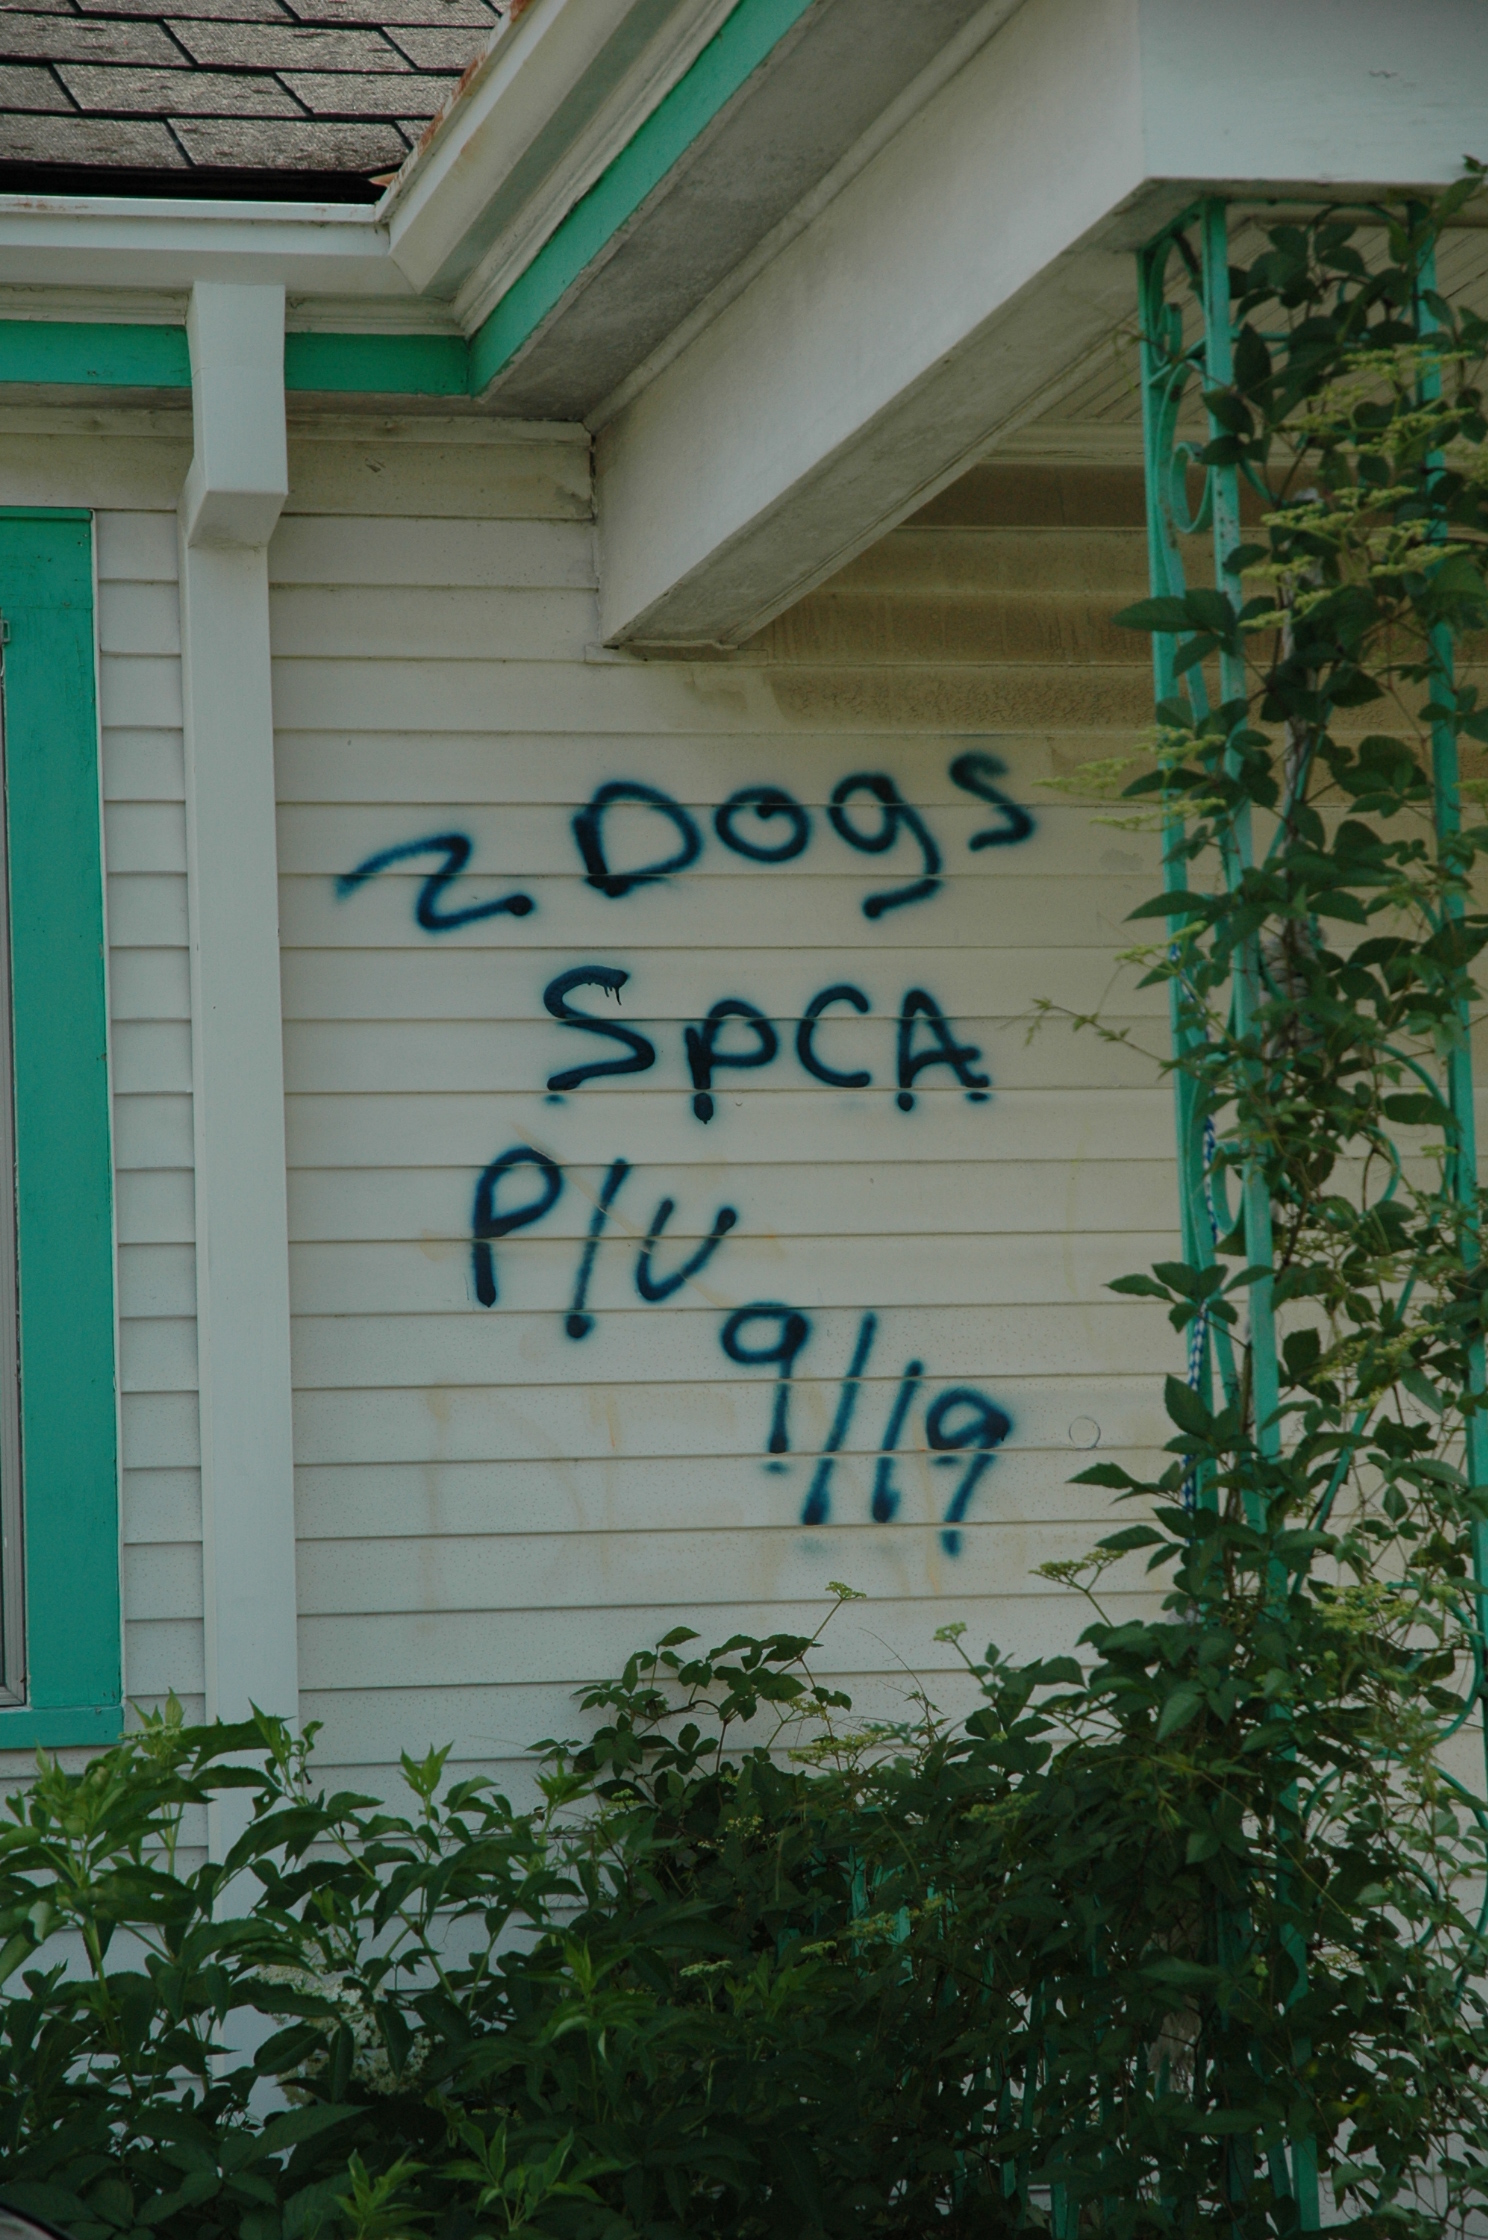 2 DOgS
SPCA
P/U
9/19